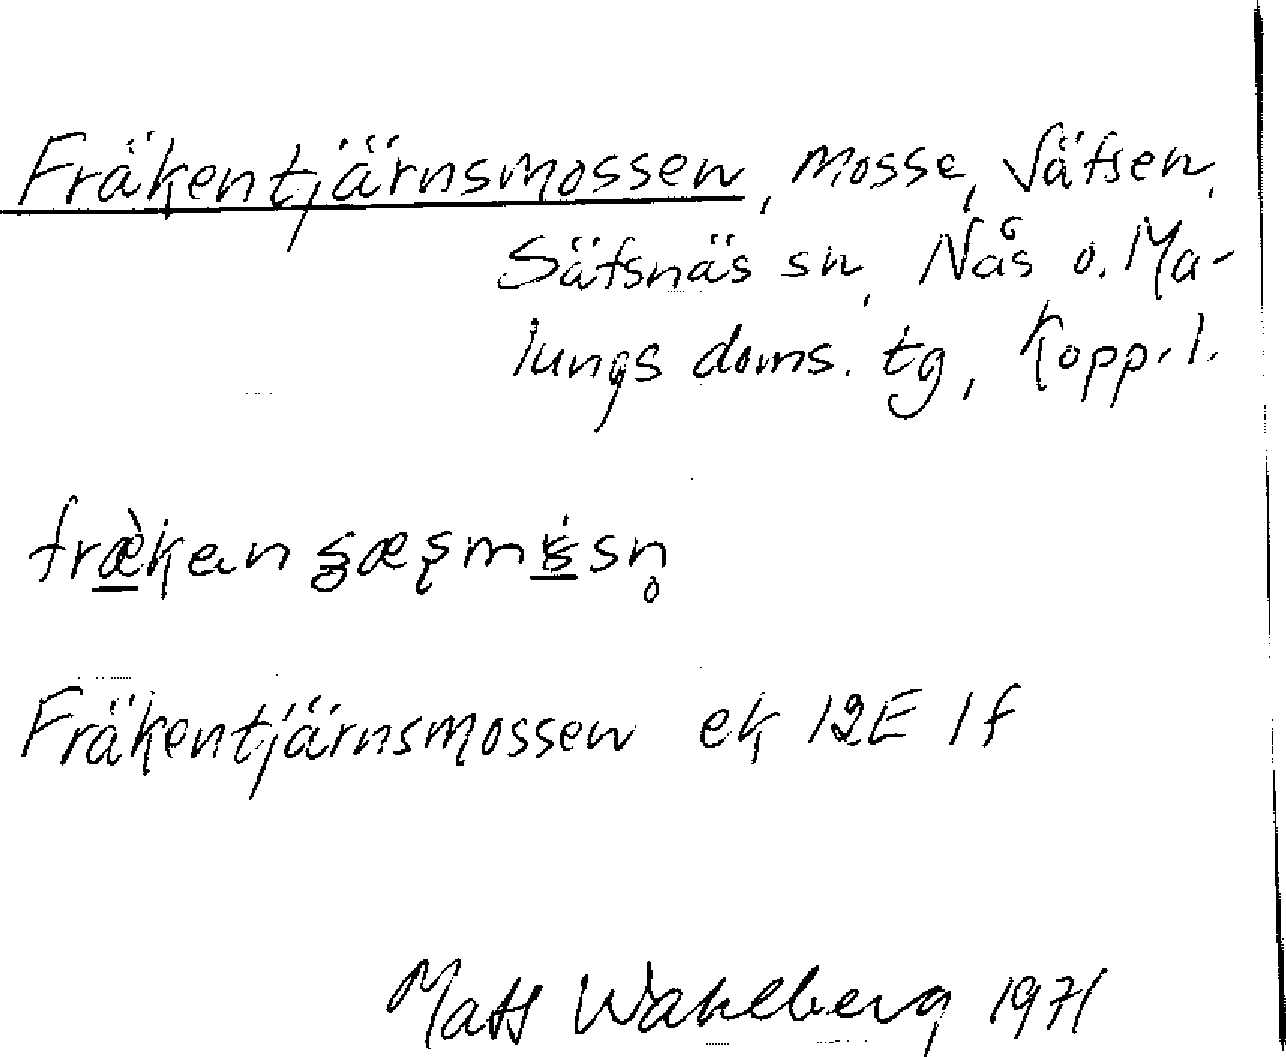 Fräkentjärnsmossen, mosse, Säfsen,
Säfsnäs sn, Nås o. Ma-
lungs doms. tg, Kopp. l.
Fräkentjärnsmossen ek 12E 1f
Mats Wahlberg 1971